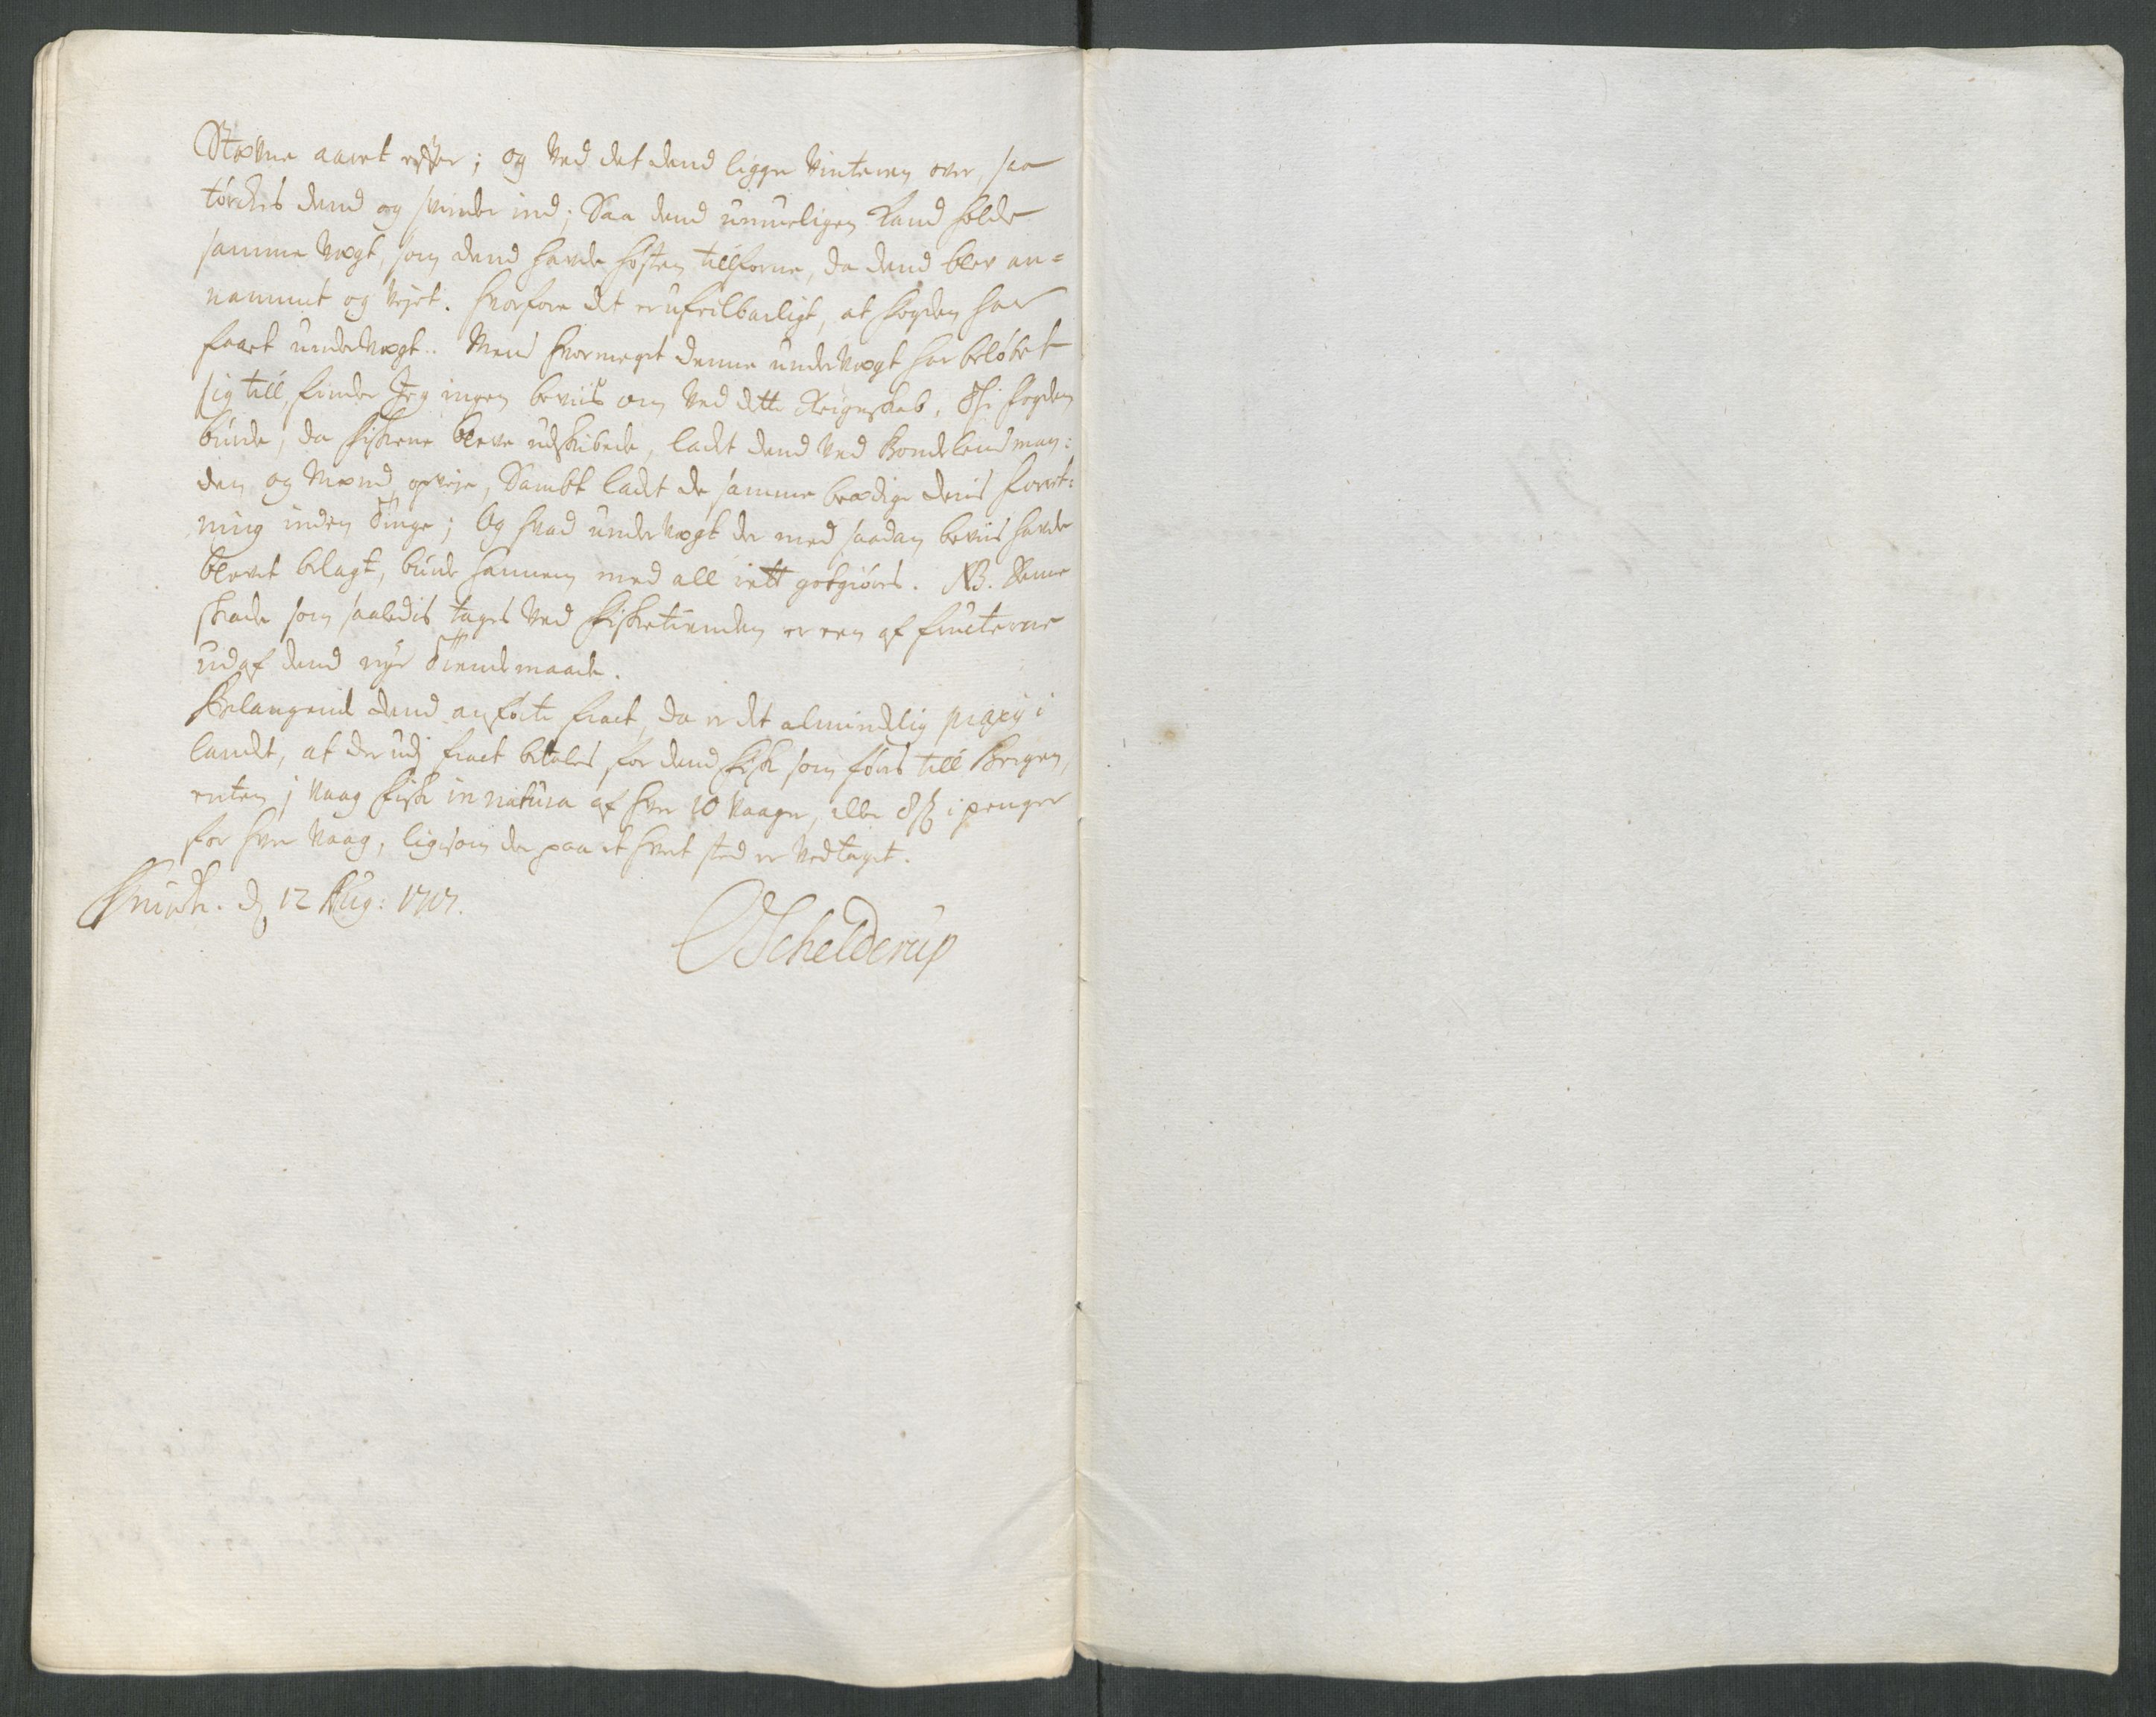 Stævne aaret effter; og ved det dend ligger Vinteren over, saa
törckis dend og svinder ind; Saa dend umueligen Kand holde
samme Vægt, som dend hafde hösten tillforne, da dend blev an=
nammet og Vejet. hvorfore det er ufeilbarligt, at fogden har
faaet undervægt. Mend hvormeget denne undervægt har belöbet
sig till, finder Jeg ingen beviis om ved dette Regnskab. Thi fogden
burde, da fiskene bleve udskibede, ladet dend ved Bondelensman:
den og Mænd opveje, Sambt ladet de samme beædige deris forret:
ning inden Tinge; Og hvad undervægt der med saadan beviis hafde
blevet belagt, burde hannem med all rett godgiöris. NB. Denne
skade som saaledis tages ved fisketiender er een af fructerne
ud af dend nye Tiendemaade.
Belangende dend anförte fract, da er det almindelig praxij i
landet, at der udj fract betales for dend fisk som föris till Bergen,
enten j Vaag fisk in natura af hver 10 Vaager, eller 8 ß i penger
for hver Vaag, ligesom der paa et hvert sted er Vedtaget.
d 12 Aug: 1717.
OSchelderup